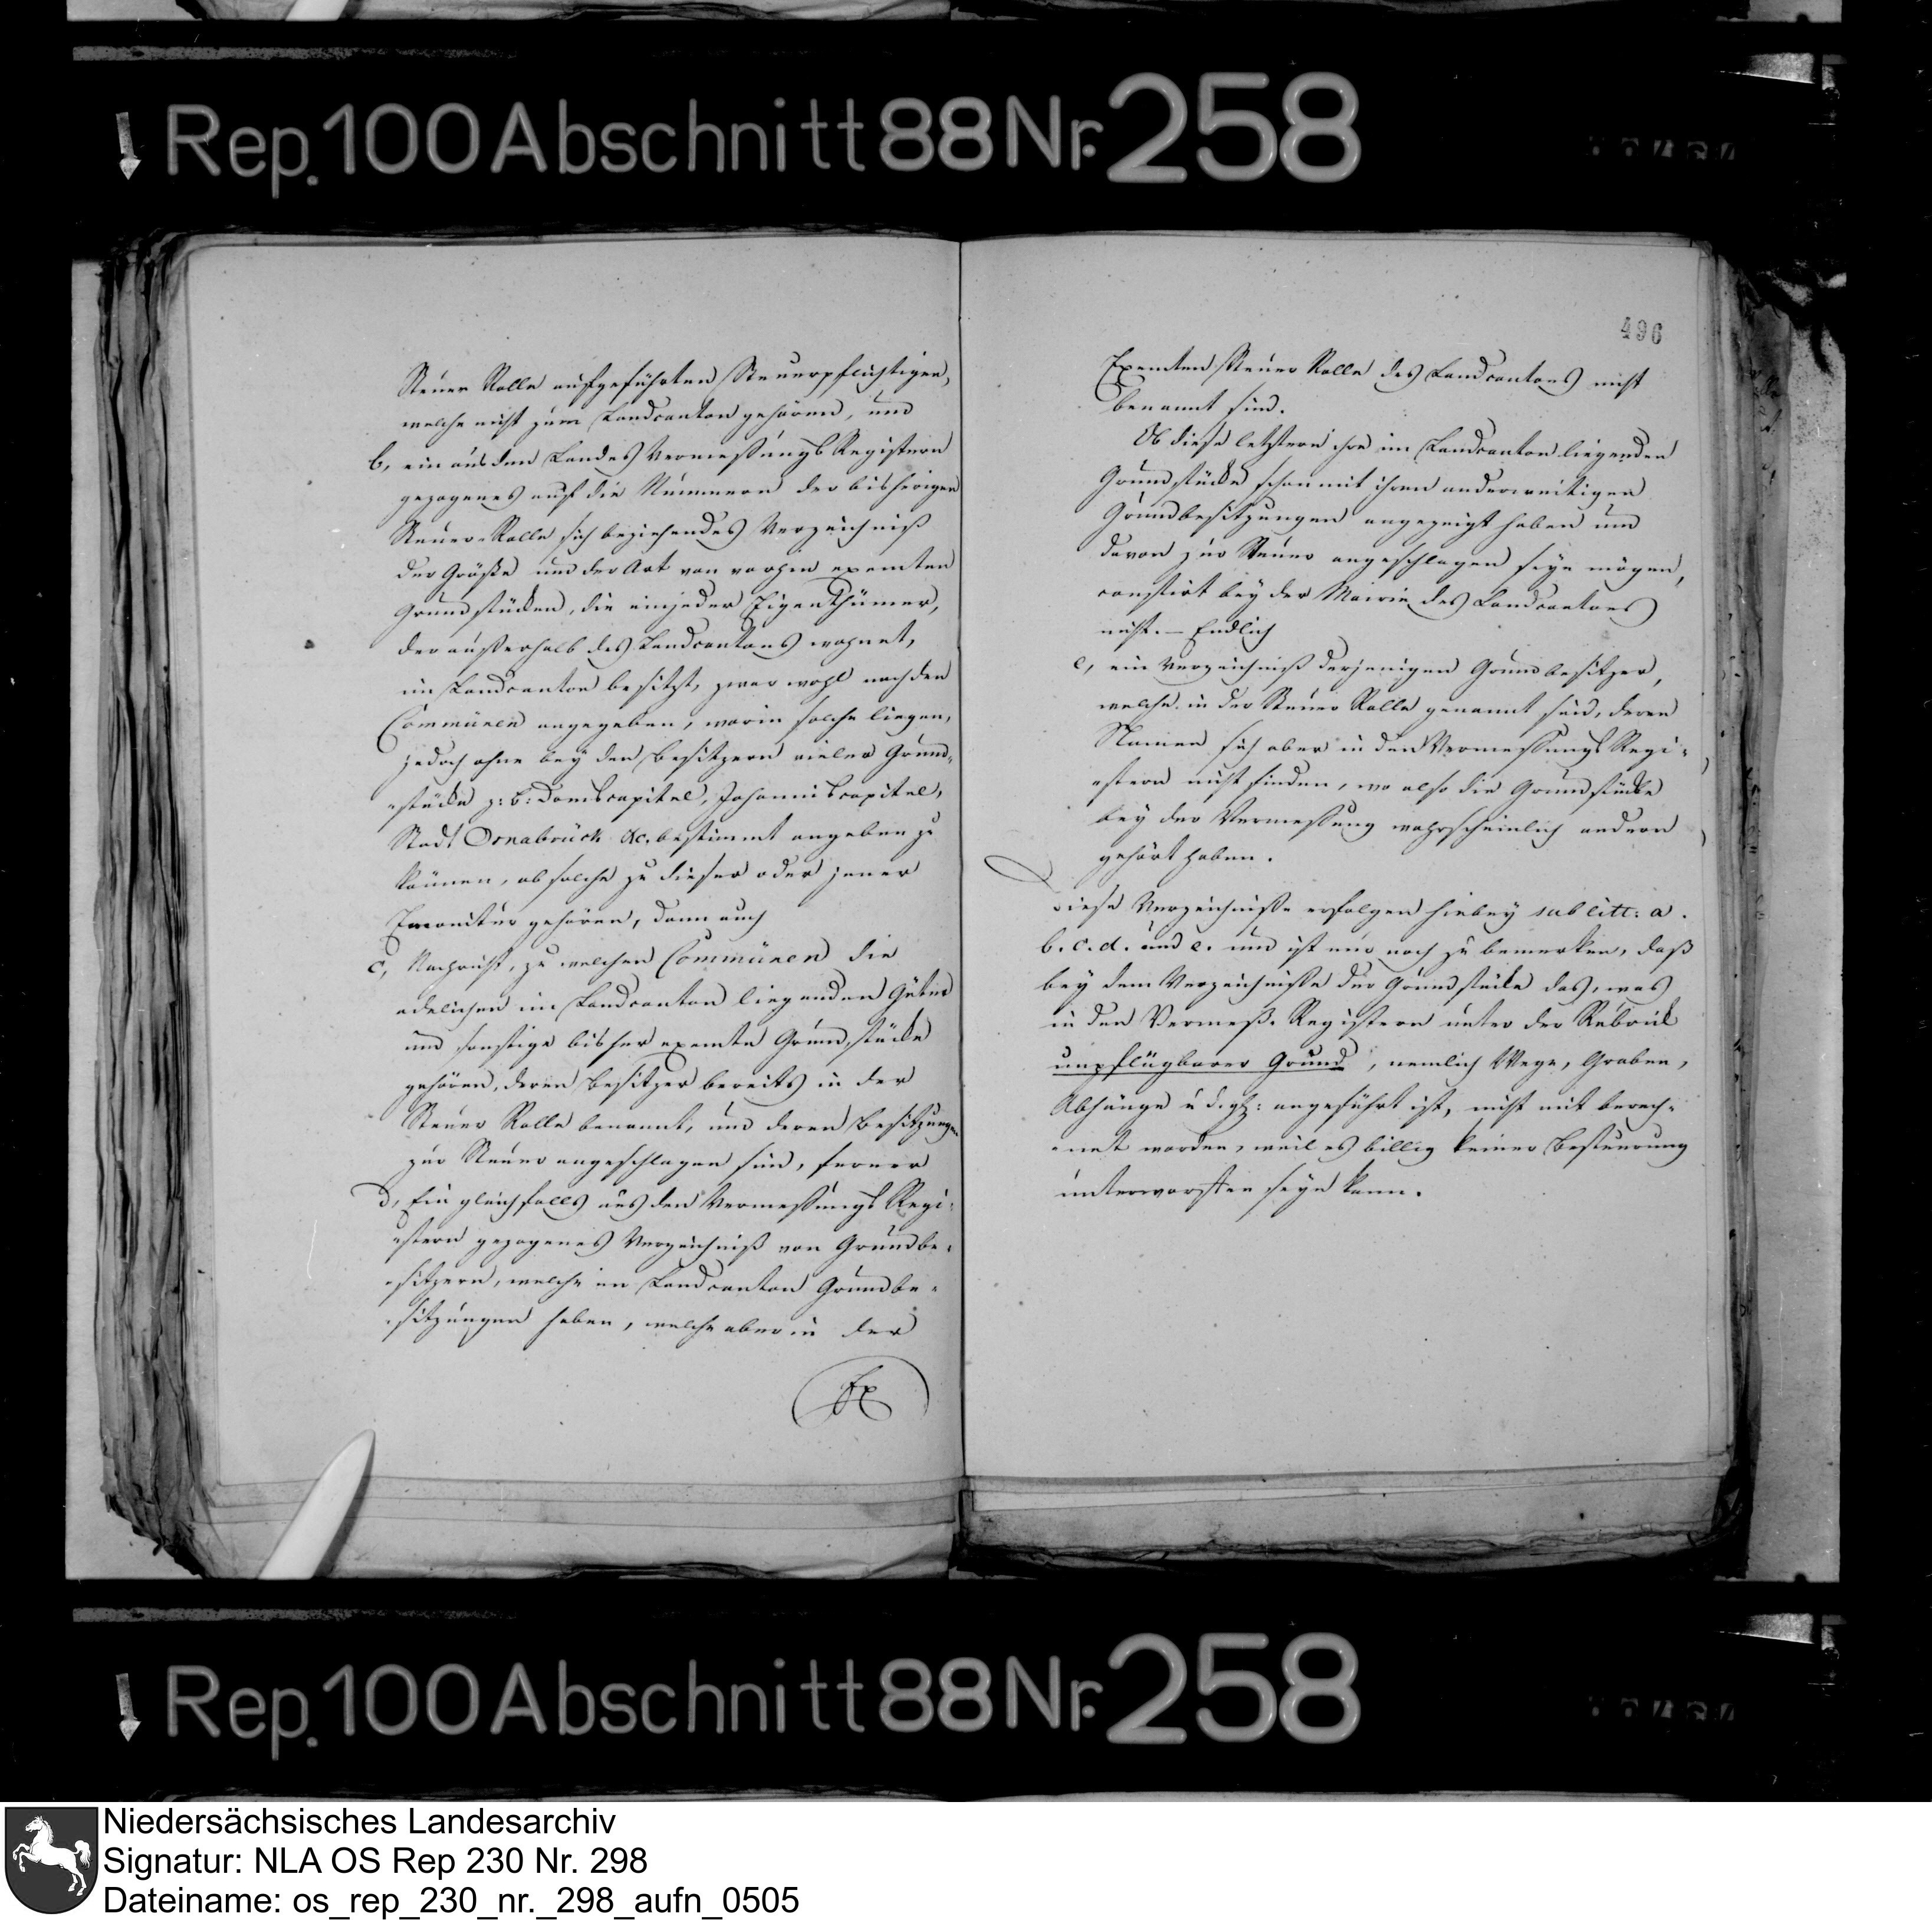 Rep. 100 Abschnitt 88 Nr. 258
Steuer Rolle aufgeführten Steuerpflichtigen,
welche nicht zum Landcanton gehören, und
b, ein aus den Landes Vermessungs Registern
gezogenes auf die Nummern der bisherigen
Steuer-Rolle sich beziehendes Verzeichniß
der Größe und der Art von vorhin exemten
Grundstücken, die einjeder Eigenthümer,
der außerhalb des Landcantons wohnet,
im Landcanton besitzt, zwar wohl nach den
Communen angegeben, worin solche liegen,
jedoch ohne bey den Besitzern vieler Grund-
-stücke z: B: Domcapitel, Johanniscapitel,
Stadt Osnabrück &c. bestimmt angeben zu
können, ob solche zu dieser oder jener
gehören, dann auch
c, Nachricht, zu welchen Communen die
adelichen im Landcanton liegenden Güter
und sonstige bisher exemte Grundstücke
gehören, deren Besitzer bereits in der
Steuer Rolle benannt, und deren Besitzungen
zur Steuer angeschlagen sind, ferner
d, Ein gleichfalls aus den Vermessungs Regi-
-stern gezogenes Verzeichniß von Grundbe-
-sitzern, welche im Landcanton Grundbe-
-sitzungen haben, welche aber in der
Ex
496
Exemten Steuer Rolle des Landcantons nicht
benannt sind.
Ob diese letztern ihre im Landcanton liegenden
Grundstücke schon mit ihren anderweitigen
Grundbesitzungen angezeigt haben und
davon zur Steuer angeschlagen seyn mögen,
constirt bey der Mairie des Landcantons
nicht. — Endlich
e, ein Verzeichniß derjenigen Grundbesitzer,
welche in der Steuer Rolle genannt sind, deren
Namen sich aber in den Vermessungs Regi-
-stern nicht finden, wo also die Grundstücke
bey der Vermessung wahrscheinlich andern
gehört haben.
Diese Verzeichnisse erfolgen hiebey sub litt: a.
b. c. d. und e. und ist nur noch zu bemerken, daß
bey dem Verzeichnisse der Grundstücke das, was
in den Vermeß. Registern unter der Rubrik
unpflügbarer Grund, nemlich Wege, Graben,
Abhänge u. d. gl: angeführt ist, nicht mit berech-
-net worden, weil es billig keiner Besteuerung
unterworffen seyn kann.
Rep. 100 Abschnitt 88 Nr. 258
Niedersächsisches Landesarchiv
Signatur: NLA OS Rep 230 Nr. 298
Dateiname: os_rep_230_nr._298_aufn_0505